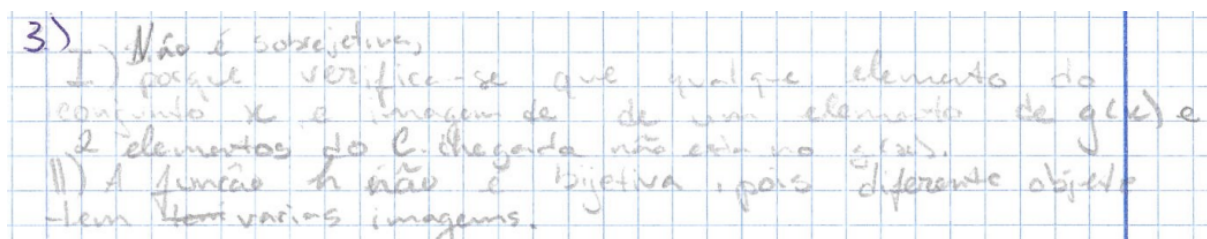 3) Não é sobrejetiva,
I) porque verifica-se que qualque elemento do
conjunto x e imagem de de um elemento de g(x) e
2 elementos do C. chegada não no g(x).
II) A função h não é bijetiva, pois diferente objeto
tem tem varias imagens.